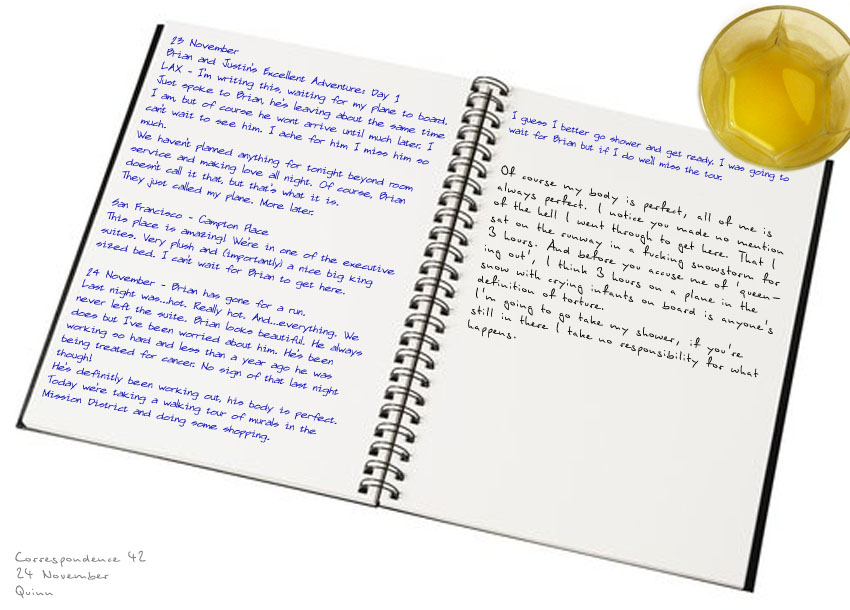 23 November
Brian and Justin's Excellent Adventure: Day 1
LAX - I'm writing this, waiting for my plane to board.
Just spoke to Brian, he's leaving about the same time
I am, but of course he wont arrive until much later. I
can't wait to see him. I ache for him I miss him so
much.
We haven't planned anything for tonight beyond room
service and making love all night. Of course, Brian
doesn't call it that, but that's what it is.
They just called my plane. More later.
San Francisco - Campton Place
This place is amazing! We're in one of the executive
suites. Very plush and (importantly) a nice big king
sized bed. I can't wait for Brian to get here.
24 November - Brian has gone for a run.
Last night was...hot. Really hot. And...everything. We
never left the suite. Brian looks beautiful. He always
does but I've been worried about him. He's been
working so hard and less than a year ago he was
being treated for cancer. No sign of that last night
though!
He's definitly been working out, his body is perfect.
Today we're taking a walking tour of murals in the
Mission District and doing some shopping.
I guess I better go shower and get ready. I was going to
wait for Brian but if I do we'll miss the tour.
Of course my body is perfect, all of me is
always perfect. I notice you made no mention
of the hell I went through to get here. That I
sat on the runway in a fucking snowstorm for
3 hours. And before you accuse me of 'queen-
ing out', I think 3 hours on a plane in the
snow with crying infants on board is anyone's
definition of torture.
I'm going to go take my shower, if you're
still in there I take no responsibility for what
happens.
Correspondence 42
24 November
Quinn